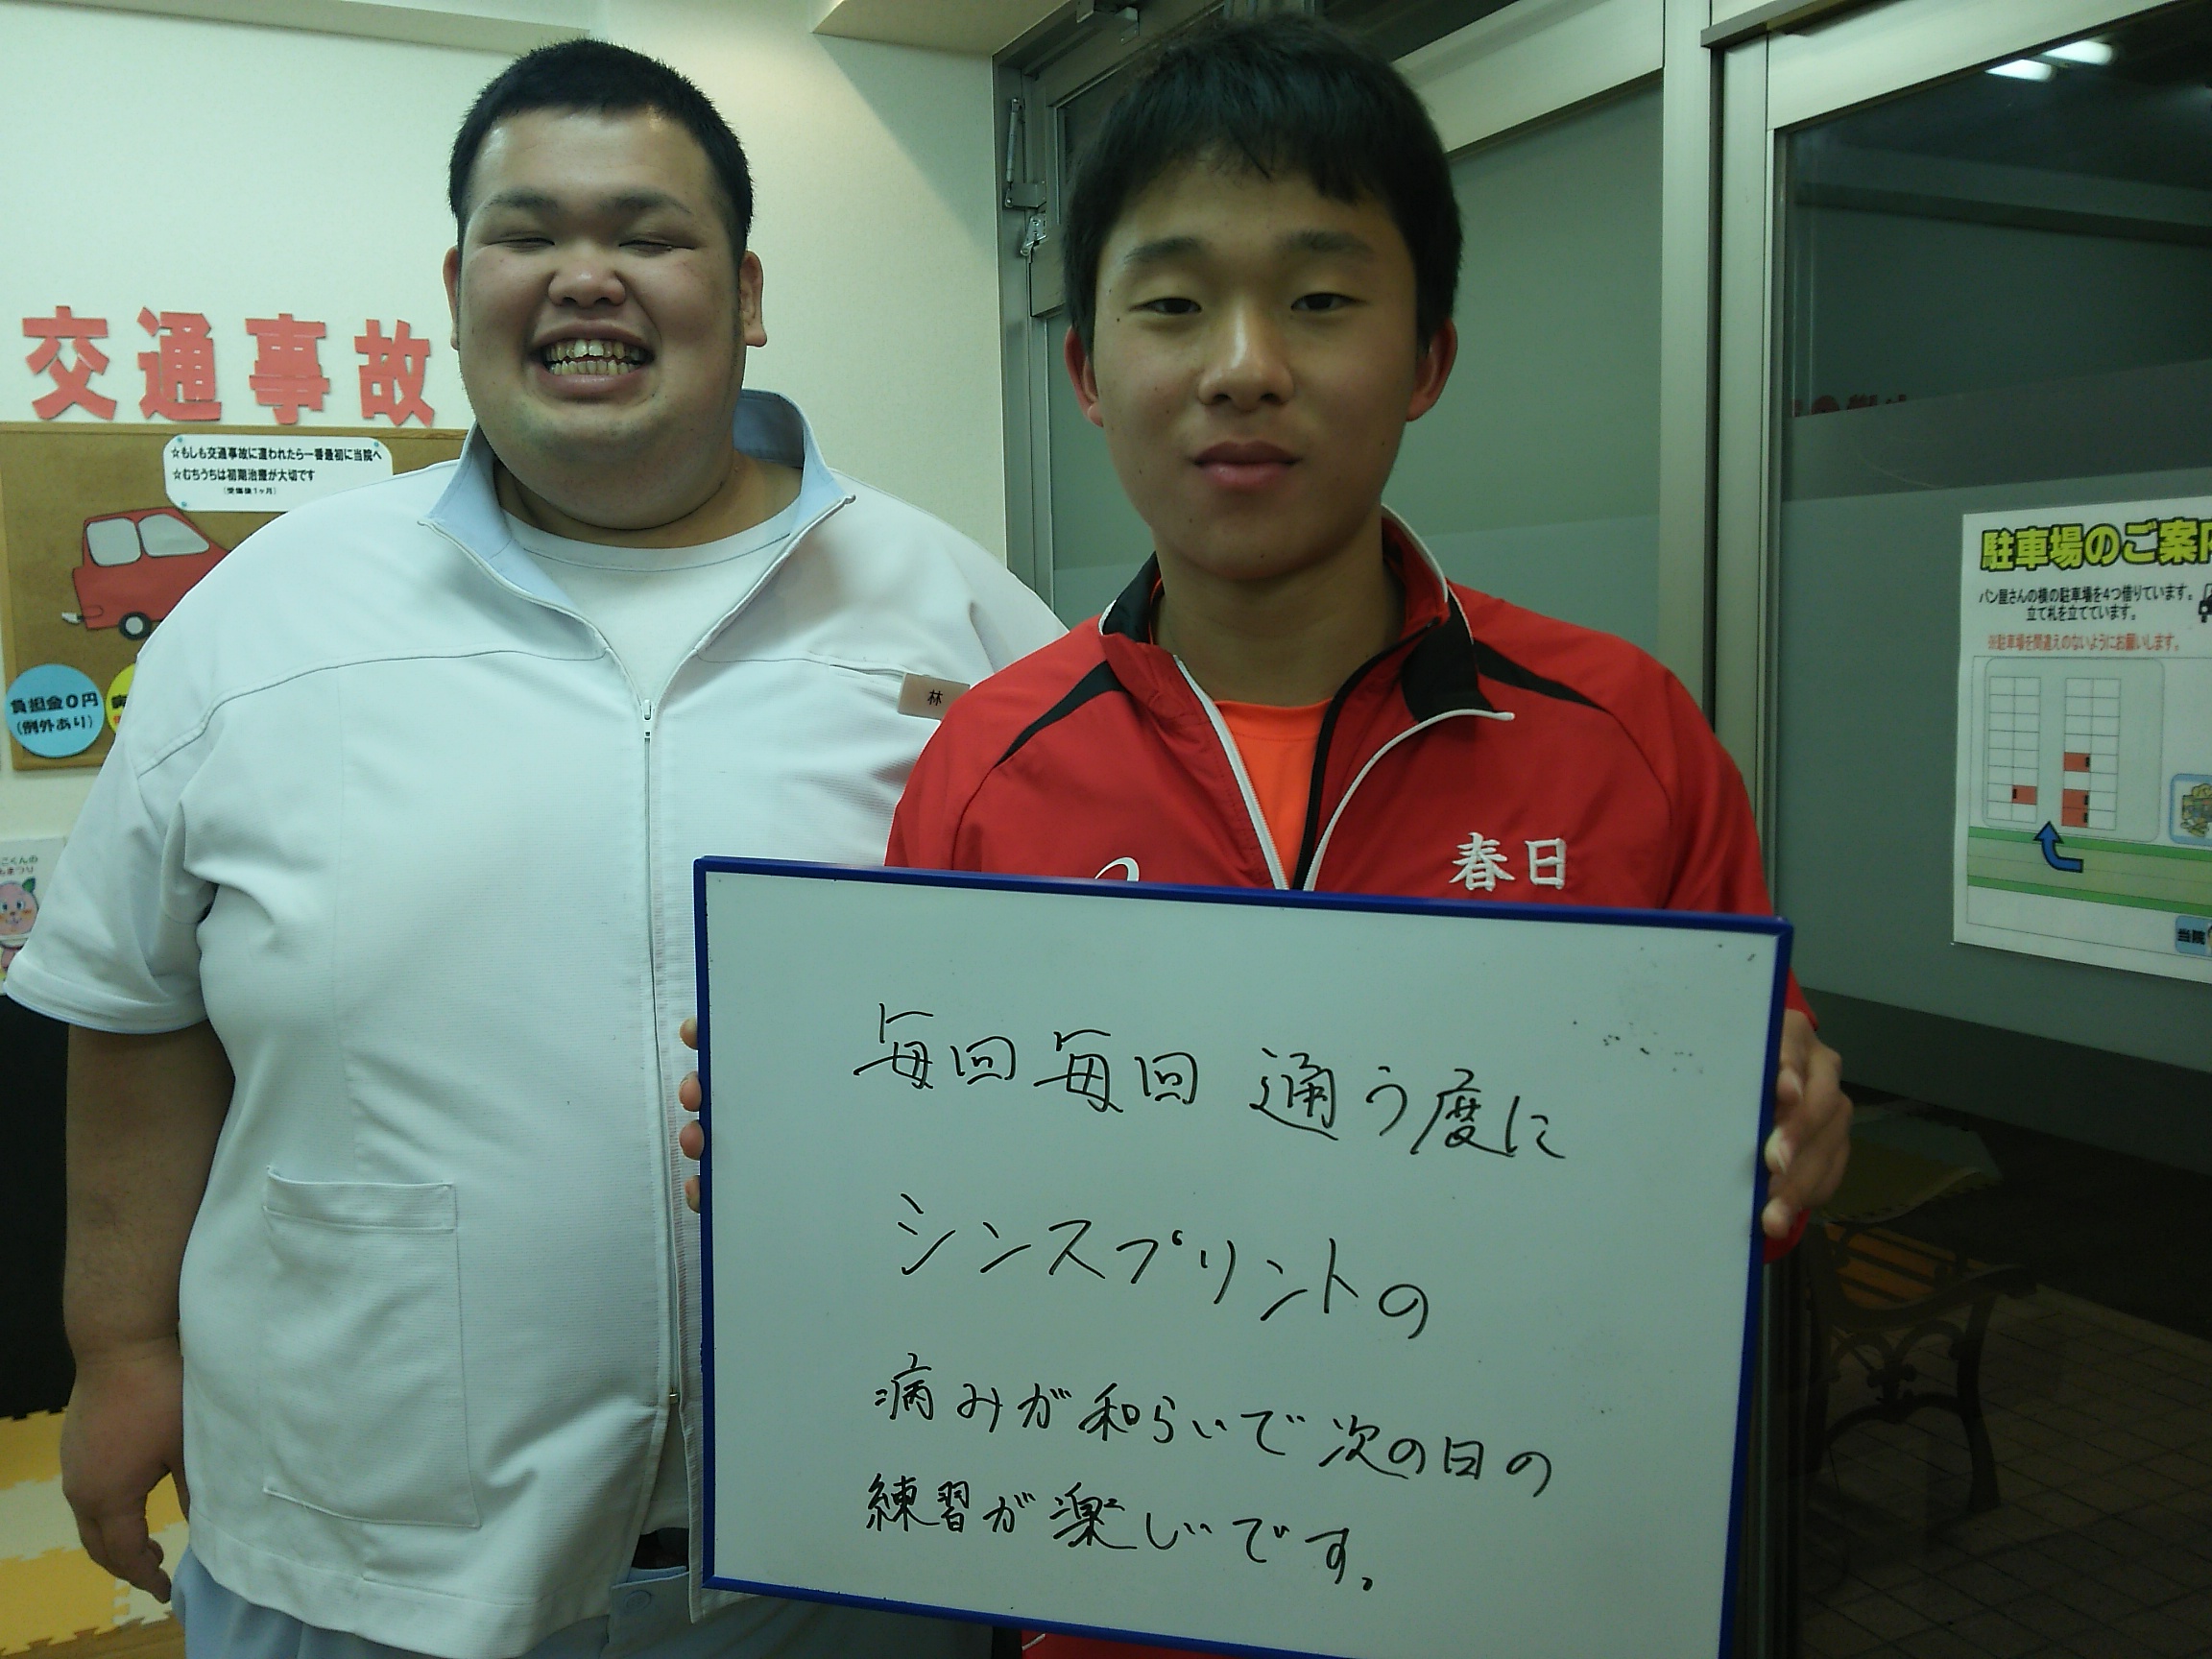 交通事故
☆もしも交通事故に遭われたら一番最初に当院へ
☆むちうちは初期治療が大切です
(受傷後1ヶ月)
負担金0円
(例外あり)
林
春日
毎回毎回 通う度に
シンスプリントの
痛みが和らいで次の日の
練習が楽しいです。
駐車場のご案内
パン屋さんの横の駐車場を4つ借りています。
立て札を立てています。
※駐車場を間違えのないようにお願いします。
当院